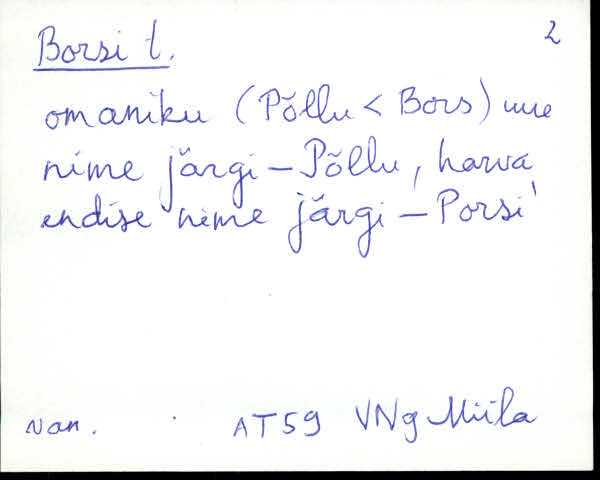 Borsi t. 2
omaniku (Põllu < Bors) uue
nime järgi – Põllu, harva
endise nime järgi – Porsi'
Nan. AT59 VNg Miila